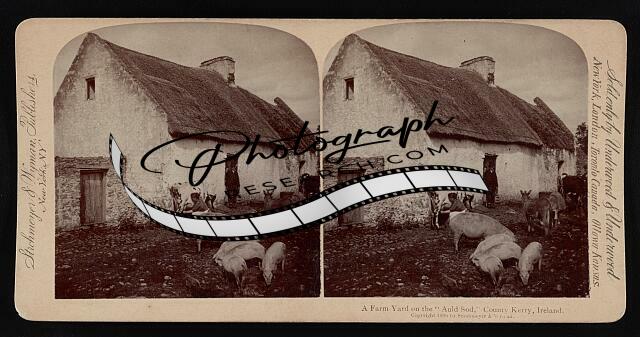 Strohmeyer & Wyman, Publishers,
New York, N.Y.
Photograph
RESEARCH.COM
Sold only by Underwood & Underwood
New York, London, Toronto Canada, Ottawa Kansas.
A Farm Yard on the "Auld Sod," County Kerry, Ireland.
Copyright by Strohmeyer &